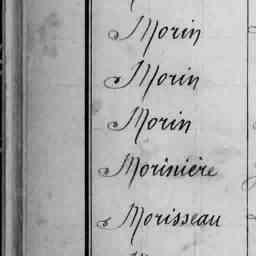 Morin
Morin
Morin
Morinière
Morisseau